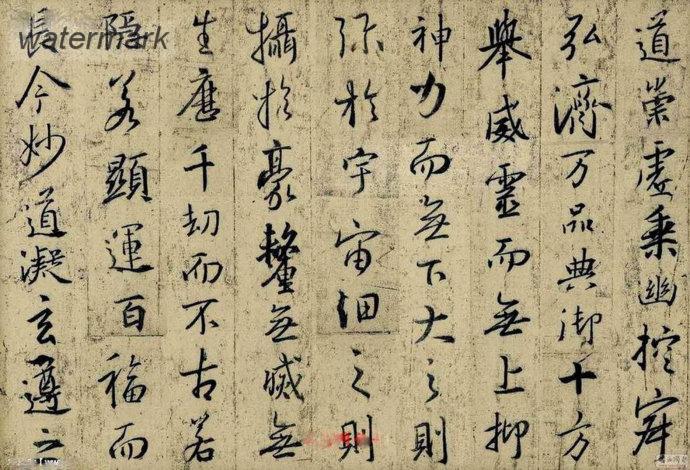 道崇虛乘幽控寂
弘濟万品典御十方
舉威靈而無上抑
神力而無下大之則
弥於宇宙細之則
攝於豪釐無滅無
生歷千劫而不古若
隱若顯運百福而
長今妙道凝玄遵之
watermark